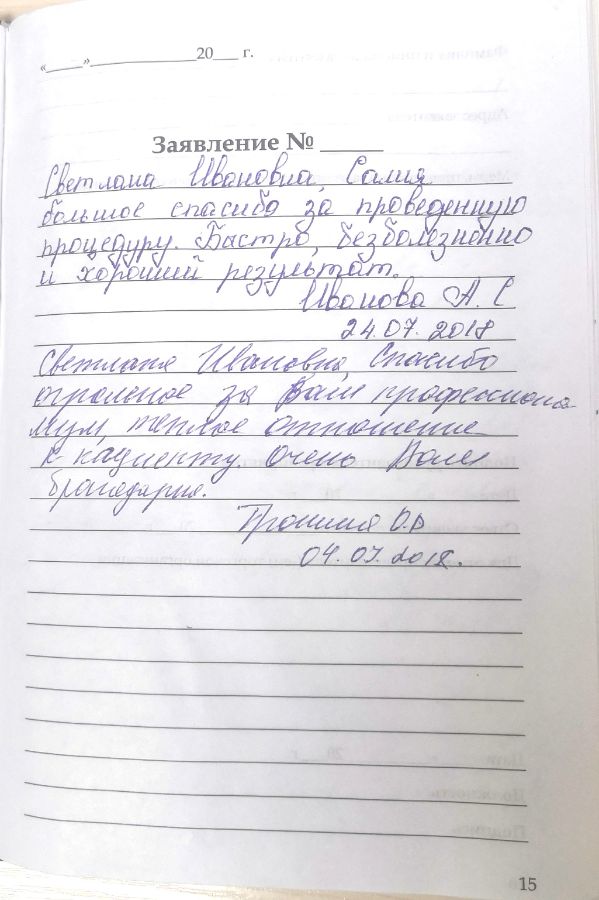 «_____»______________20___ г.
Заявление № _____
Светлана Ивановна, Салия
большое спасибо за проведенную
процедуру. Быстро, безболезненно
и хороший результат.
Иванова А. С
24.07. 2018
Светлана Ивановна, Спасибо
огромное за Ваш профессиона-
лизм, теплое отношение
к пациенту. Очень Вам
благодарна.
О.В
04.07. 2018.
15